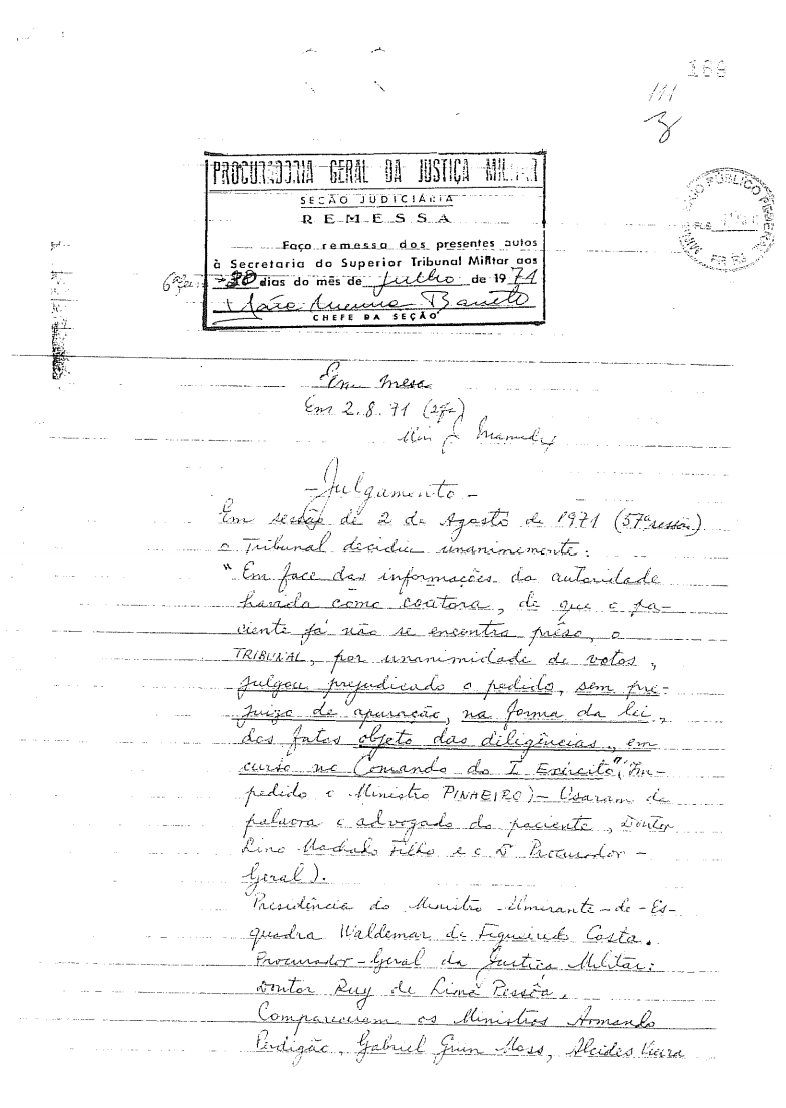 188
111
PROCURADORIA GERAL DA JUSTIÇA MILITAR
SEÇÃO JUDICIÁRIA
REMESSA
Faço remessa dos presentes autos
à Secretaria do Superior Tribunal Militar aos
30 dias do mês de julho de 1971
Barreto
CHEFE DA SEÇÃO
MINISTÉRIO PÚBLICO FEDERAL
FLS
Em mesa
Em 2.8.71 (2ªf)
Min J. Mamede
-Julgamento-
Em sessão de 2 de Agosto de 1971 (57ª sessão)
o Tribunal decidiu unanimemente:
"Em face das informações da autoridade
havida como coatora, de que o pa-
ciente já não se encontra prêso, o
TRIBUNAL, por unanimidade de votos,
julgou prejudicado o pedido, sem pre-
juizo de apuração, na forma da lei,
dos fatos objeto das diligências, em
curso no Comando do I Exército" (Im-
pedido o Ministro PINHEIRO) - Usaram da
palavra o advogado do paciente, Doutor
Lino Machado Filho e o Dr Procurador-
Geral).
Presidência do Ministro Almirante-de-Es-
quadra Waldemar de Figueiredo Costa.
Procurador-Geral da Justiça Militar:
Doutor Ruy de Lima Pessôa.
Compareceram os Ministros Armando
Perdigão, Gabriel Grun Moss, Alcides Vieira